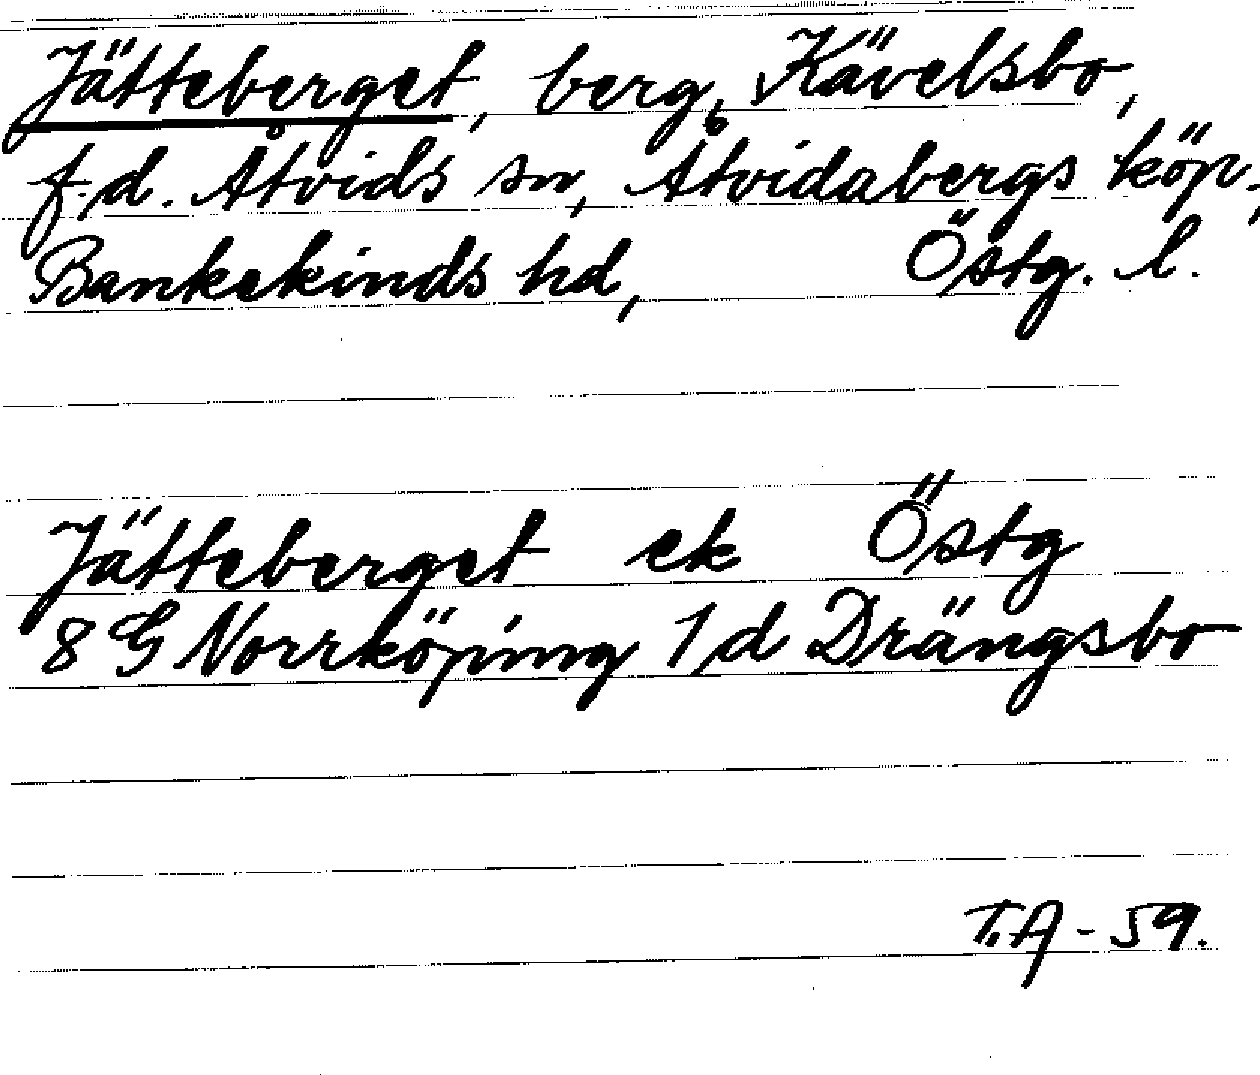 Jätteberget, berg, Kävelsbo,
f.d. Åtvids sn, Åtvidabergs köp.,
Bankekinds hd, Östg. l.
Jätteberget ek Östg
8 G Norrköping 1 d Drängsbo
T.A - 59.